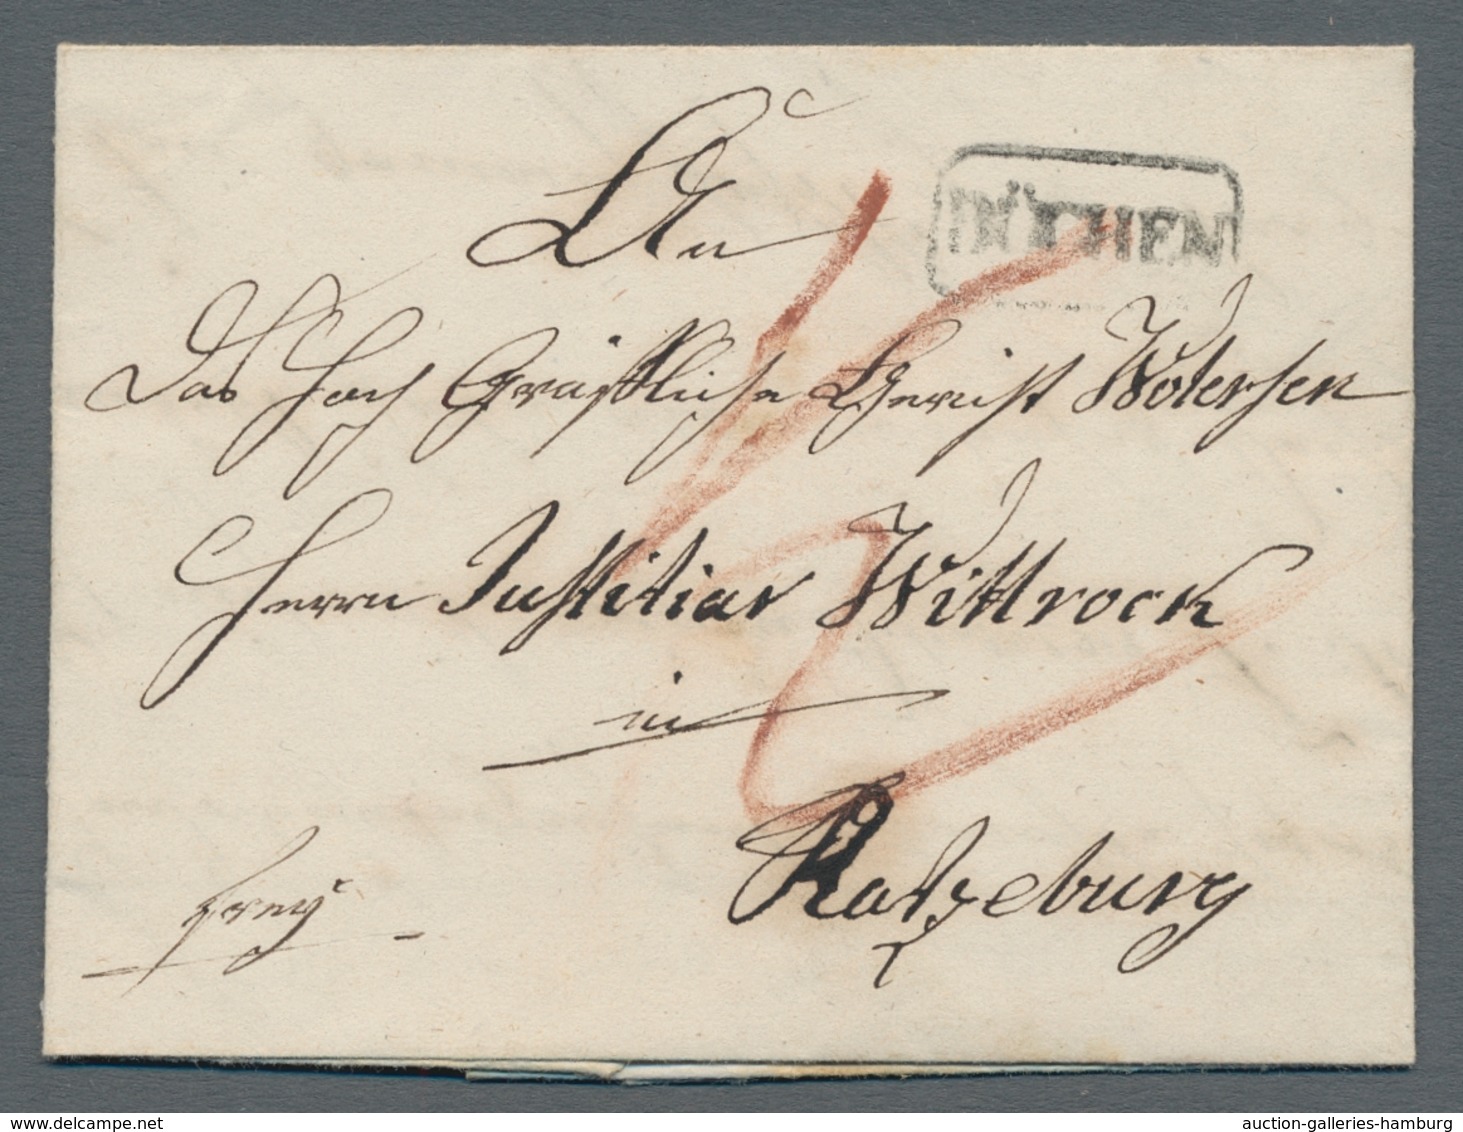 An
BÜCHEN
Das Hoch Gräffliche Gericht Wotersen
Herrn Justitiar Wittrock
in
Ratzeburg
frey
auction-galleries-hamburg
www.delcampe.net